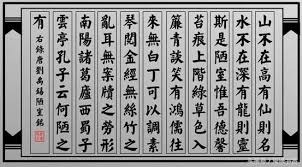 山不在高有仙則名
水不在深有龍則靈
斯是陋室惟吾德馨
苔痕上階綠草色入
簾青談笑有鴻儒往
來無白丁可以調素
琴閱金經無絲竹之
亂耳無案牘之勞形
南陽諸葛廬西蜀子
雲亭孔子云何陋之
有
右錄唐劉禹錫陋室銘